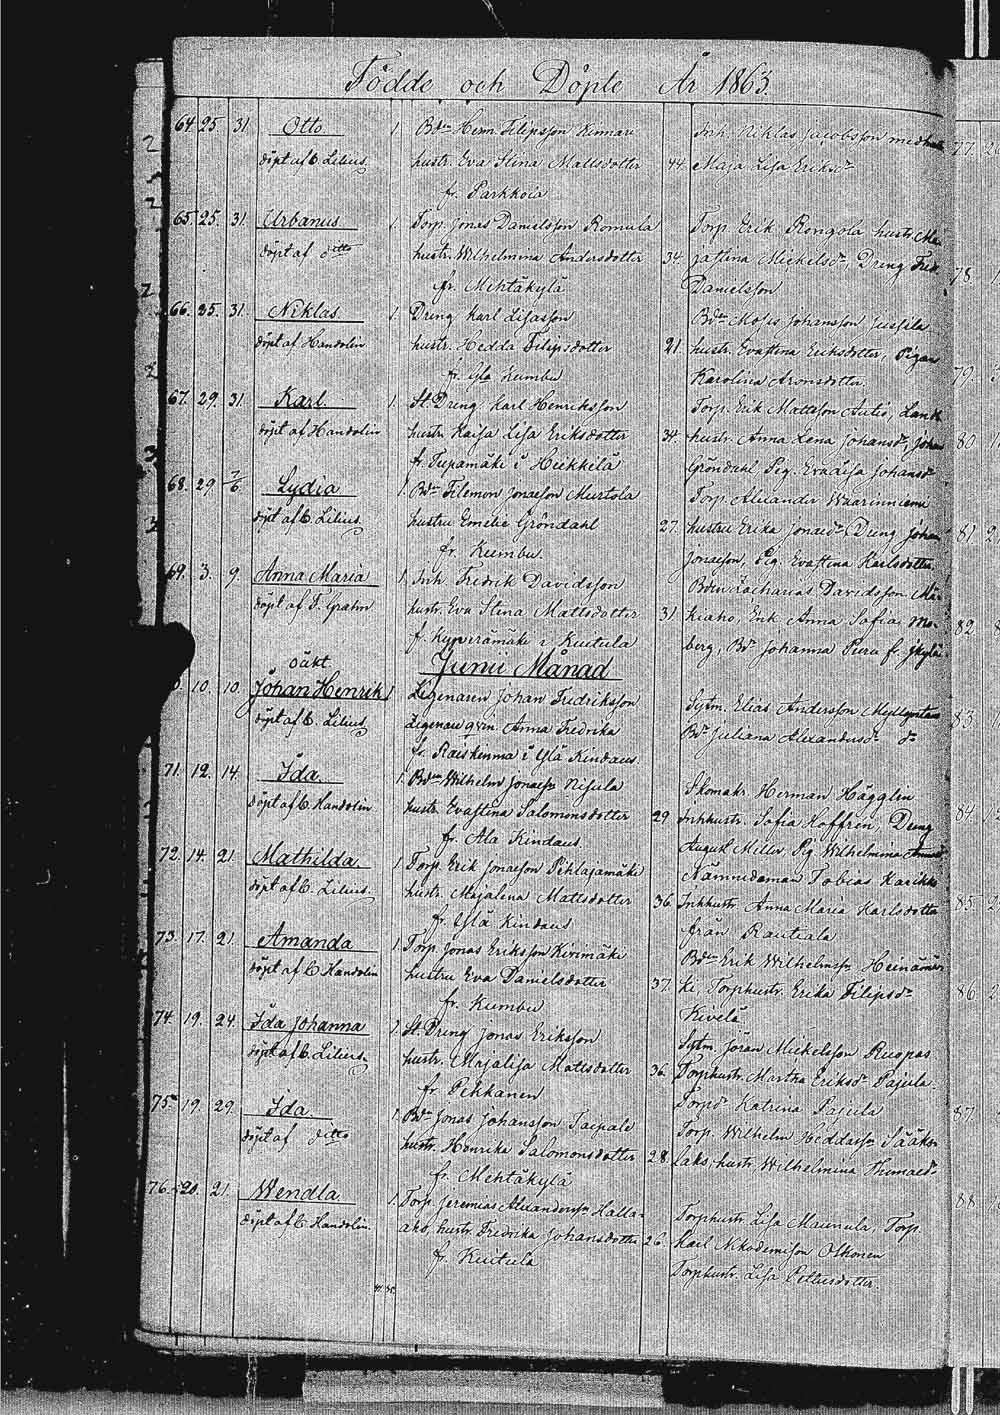 Födde och Döpte År 1863.
64. 25. 31. Otto. 1. Bdn Herm. Filipsson Kinnari Inh. Niklas Jacobsson med hustr.
döpt af C. Lilius. hustr. Eva Stina Mattsdotter 44. Maja Lisa Eriksdr
fr. Parkkola
65. 25. 31. Urbanus 1. Torp. Jonas Danielsson Romula Torp. Erik Rongola hustr. Ma-
döpt af ditto hustr. Wilhelmina Andersdotter 34. jastina Mickelsdr, Dreng Fred.
fr. Mehtäkylä Danielsson
66. 25. 31. Niklas. 1. Dreng Karl Lisasson Bdn Moses Johansson Jussila
döpt af Handolin hustr. Hedda Filipsdotter 21. hustr. Evastina Eriksdotter, Pigan
fr. Ylä Kumbu Karolina Aronsdotter.
67. 29. 31. Karl 1. St. Dreng Karl Henriksson Torp. Erik Mattsson Autio,
döpt af Handolin hustr. Kaisa Lisa Eriksdotter 34. hustr. Anna Lena Johansdr, Johan
fr. Tupamäki i Heikkilä Gröndahl Pig. Eva Lisa Johansdr
68. 29. 7/6. Lydia 1. Bdn Filemon Jonasson Murtola Torp. Alexander Waarinniemi
döpt af C. Lilius. hustru Emelie Gröndahl 27. hustru Erika Jonasdr, Dreng Johan
fr. Kumbu. Jonasson, Pig. Evastina Karlsdotter.
69. 3. 9. Anna Maria 1. Inh. Fredrik Davidsson Bdn Zacharias Davidsson Mä-
döpt af F. Grahn hustr. Eva Stina Mattsdotter 31. kiaho, Enk. Anna Sofia Mo-
f. Kyperämäki i Kuutula berg, Bdr Johanna Puru f. Jkylä
Junii Månad
oäkt.
10. 10. Johan Henrik 1. Ligenaren Johan Fredriksson Sytm. Elias Andersson
döpt af C. Lilius. Ligenare qvin. Anna Fredrika Bdr Juliana Alexandersdr do
fr. Raiskinma i Ylä Kindaus.
71. 12. 14. Ida. 1. Bdn Wilhelm Jonassn Nisula Skomakr. Herman Hägglen
döpt af C. Handolin hustr. Evastina Salomonsdotter 29. Inhhustr. Sofia Hoffrin, Dreng
fr. Ala Kindaus. August Miller, Pig. Wilhelmina
72. 14. 21. Mathilda. 1. Torp. Erik Jonasson Pihlajamäki Nämndeman Tobias Karikko
döpt af C. Lilius. hustr. Majalena Mattsdotter 36. Inhhustr. Anna Maria Karlsdotter
fr. Ylä Kindaus från Rautiala
73. 17. 21. Amanda 1. Torp. Jonas Eriksson Kivimäki Bdn Erik Wilhelmssn Heinämä-
döpt af C. Handolin hustru Eva Danielsdotter 37. ki, Torphustr. Erika Filipsdr
fr. Kumbu Kivelä
74. 19. 24. Ida Johanna 1. St. Dreng Jonas Eriksson Sytm. Jöran Mickelsson Ruopas
döpt af C. Lilius. hustr. Majalisa Mattsdotter 36. Torphustr. Martha Eriksdr Pajula.
fr. Pekkanen Torpdr Katrina Pajula
75. 19. 29. Ida. 1. Bdn Jonas Johansson Taipale Torp. Wilhelm Heddassn Sääks-
döpt af ditto hustr. Henrika Salomonsdotter 28. laks, hustr. Wilhelmina
fr. Mehtäkylä
76. 20. 21. Wendla. 1. Torp. Jeremias Alexanderssn Halla- Torphustr. Lisa Maunula, Torp.
döpt af C. Handolin. aho, hustr. Fredrika Johansdotter 26. Karl Nikodemison Olkonen
fr. Kuitula Torphustr. Lisa Petrusdotter.
77.
78
79.
80
81
82
83
84.
85
86
87.
88